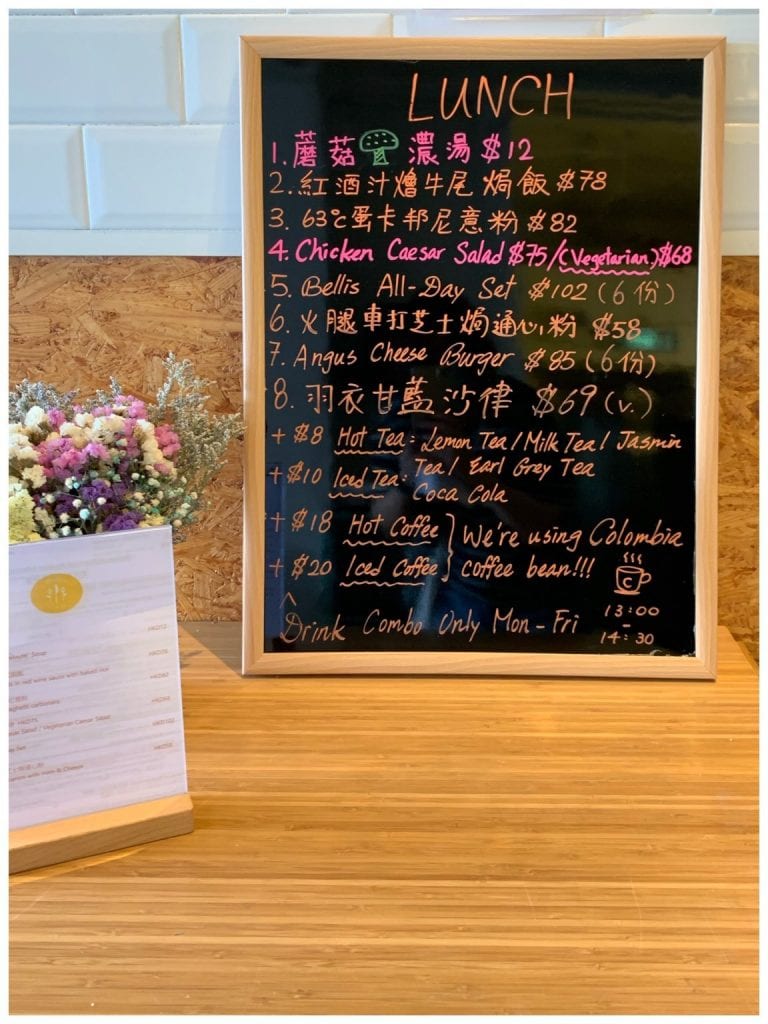 LUNCH
1. 蘑菇 濃湯 $12
2. 紅酒汁燴牛尾焗飯 $78
3. 63℃蛋卡邦尼意粉 $82
4. Chicken Caesar Salad $75/(Vegetarian)$68
5. Bellis All-Day Set $102 (6份)
6. 火腿車打芝士焗通心粉 $58
7. Angus Cheese Burger $85 (6份)
8. 羽衣甘藍沙律 $69 (v.)
+ $8 Hot Tea: Lemon Tea / Milk Tea / Jasmin
+ $10 Iced Tea: Tea / Earl Grey Tea
Coca Cola
+ $18 Hot Coffee } We're using Colombia
+ $20 Iced Coffee coffee bean!!!
C
Drink Combo Only Mon-Fri
13:00
-
14:30
Soup
in red wine sauce with baked rice
carbonara
HKD75
Salad / Vegetarian Caesar Salad
Set
with Ham & Cheese